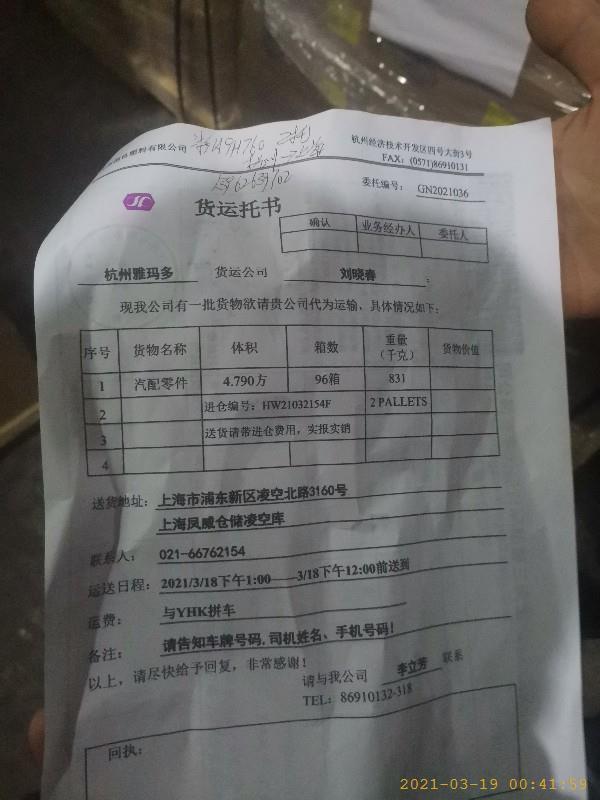 塑料有限公司
杭州经济技术开发区四号大街3号
FAX: (0571)86910131
委托编号: GN2021036
货运托书
确认 业务经办人 委托人
杭州雅玛多 货运公司 刘晓春 :
现我公司有一批货物欲请贵公司代为运输，具体情况如下:
序号 货物名称 体积 箱数 重量（千克） 货物价值
1 汽配零件 4.790方 96箱 831
2 进仓编号: HW21032154F 2 PALLETS
3 送货请带进仓费用，实报实销
4
送货地址: 上海市浦东新区凌空北路3160号
上海凤威仓储凌空库
联系人: 021-66762154
运送日程: 2021/3/18下午1:00——3/18下午12:00前送到
运费: 与YHK拼车
备注: 请告知车牌号码,司机姓名、手机号码!
以上，请尽快给予回复，非常感谢!
请与我公司 李立芳 联系
TEL: 86910132-318
回执:
2021-03-19 00:41:59